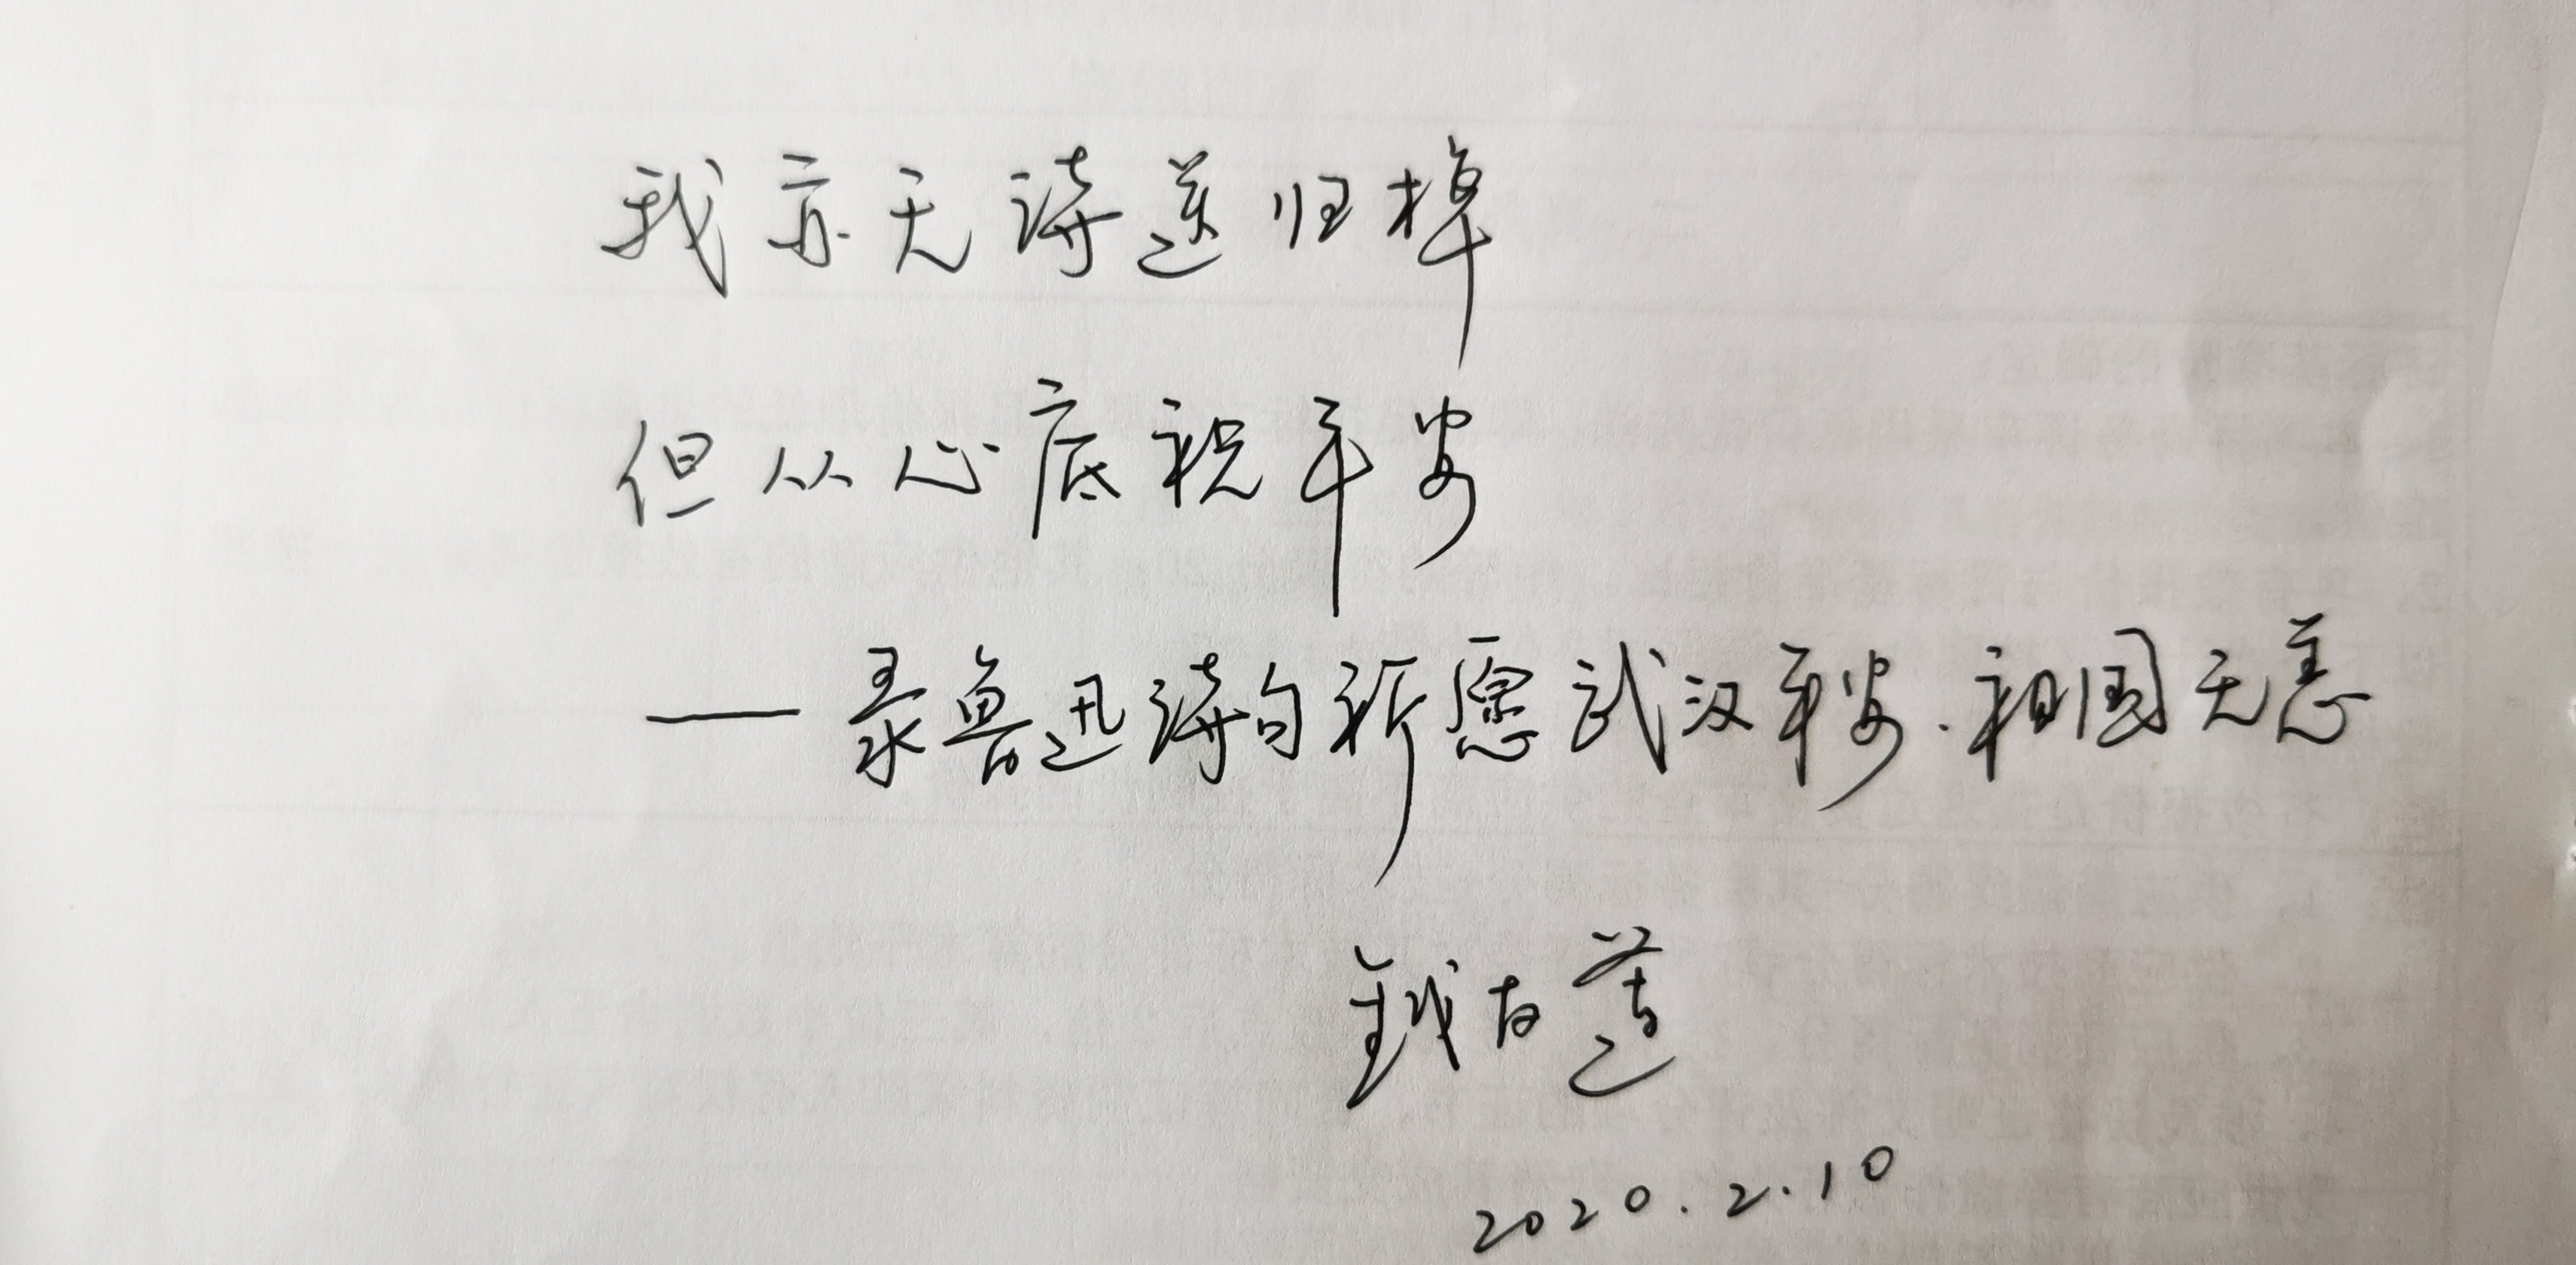 我亦无诗送归棹
但从心底祝平安
——录鲁迅诗句祈愿武汉平安.祖国无恙
钱古莲
2020.2.10